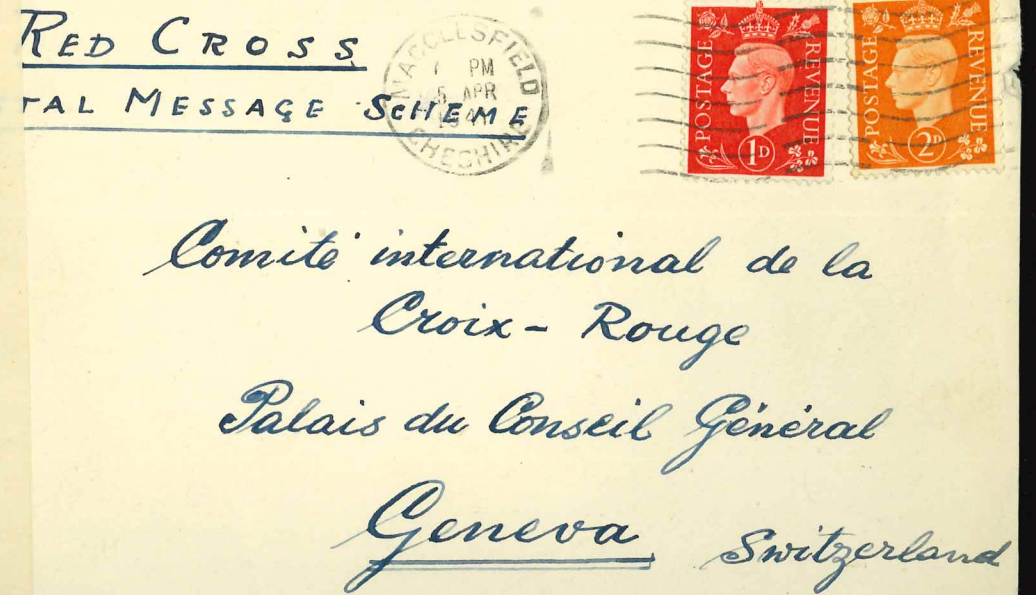 RED CROSS
TAL MESSAGE SCHEME
MACCLESFIELD
PM
5 APR
CHESHIRE
POSTAGE REVENUE
1D
POSTAGE REVENUE
2D
Comité international de la
Croix-Rouge
Palais du Conseil Général
Geneva
Switzerland